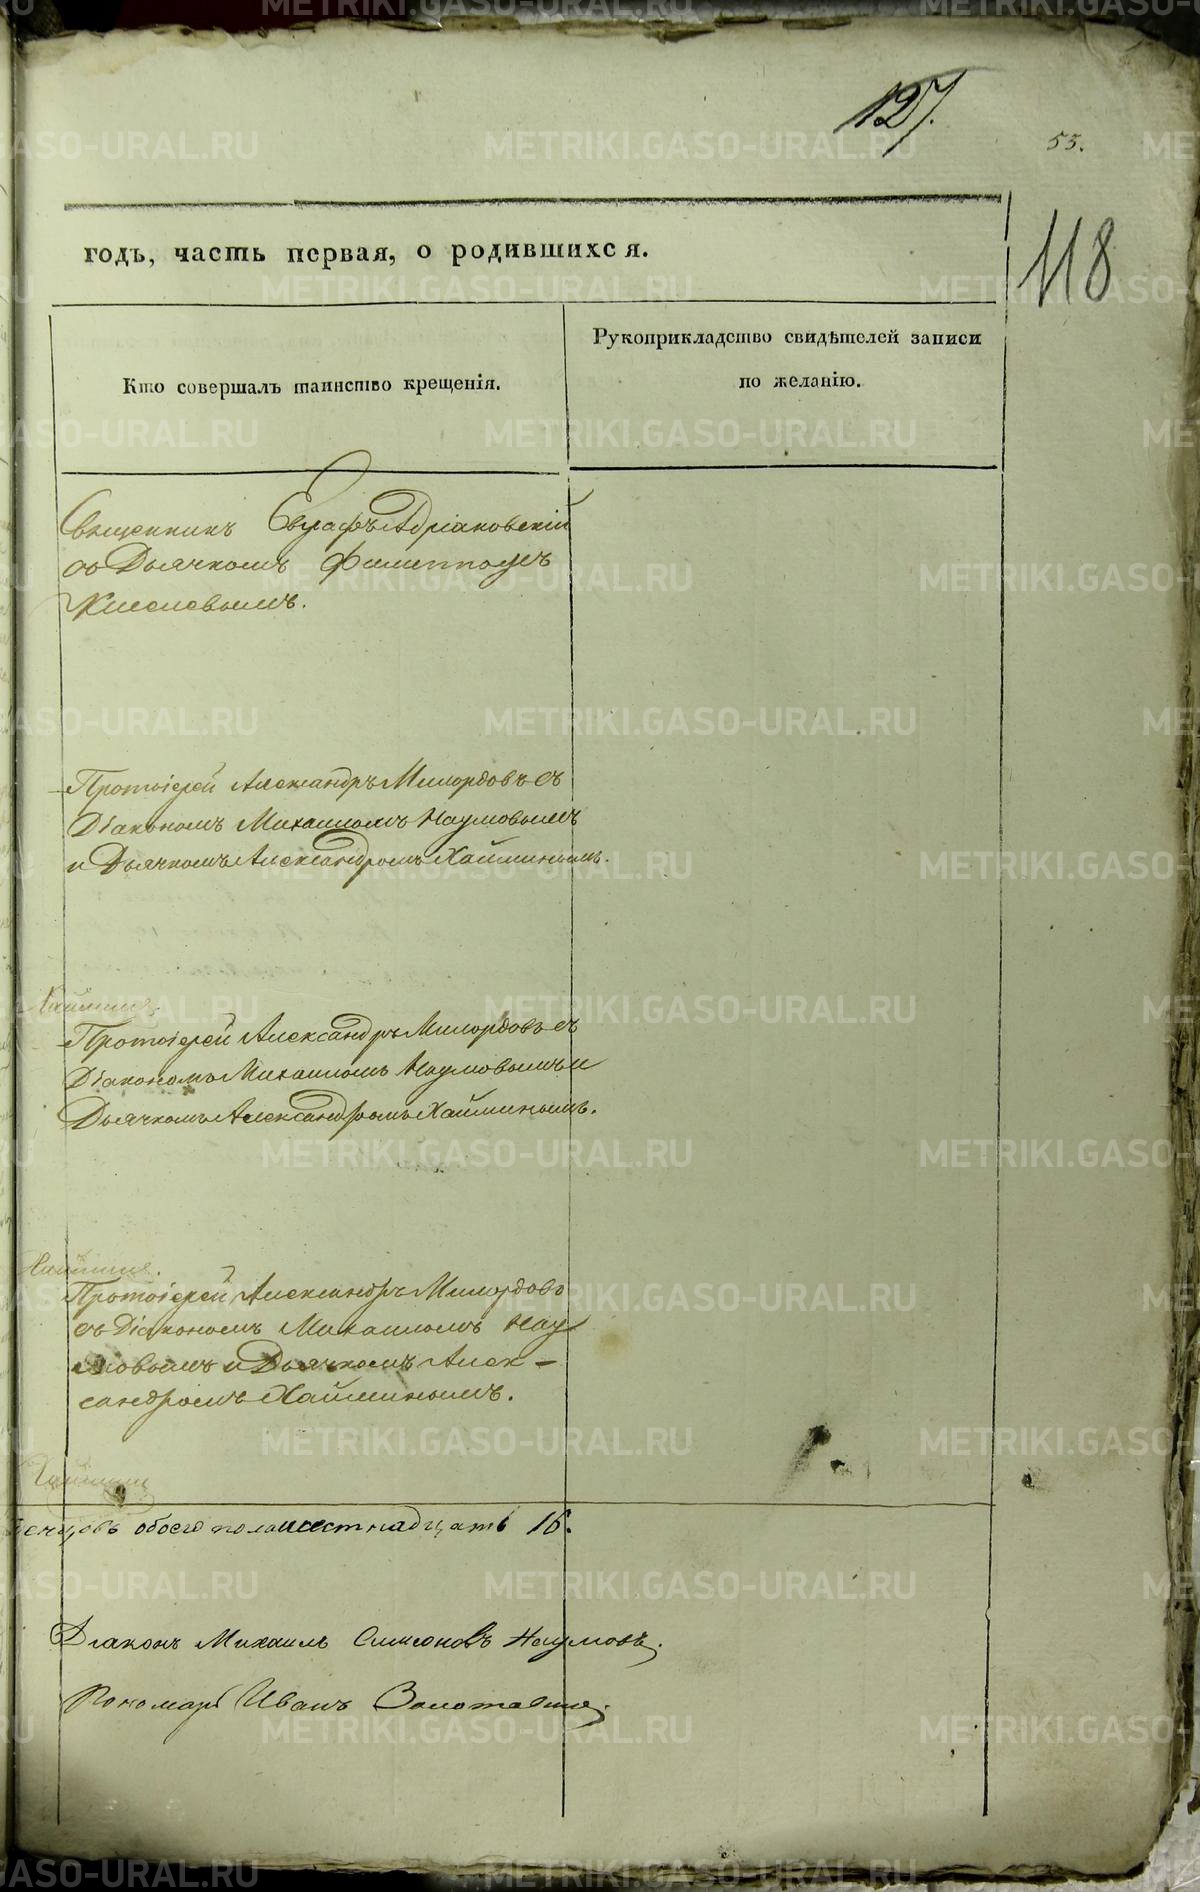 127.
55.
118
годъ, часть первая, о родившихся.
Кто совершалъ таинство крещенія.
Рукоприкладство свидѣтелей записи
по желанію.
Священникъ Евграфъ Адріановскій
съ Дьячкомъ Филиппомъ
Киселевымъ.
Протоіерей Александръ Милордовъ съ
Діакономъ Михаиломъ Наумовымъ
и Дьячкомъ Александромъ Хайминымъ.
Протоіерей Александръ Милордовъ съ
Діакономъ Михаиломъ Наумовымъ и
Дьячкомъ Александромъ Хайминымъ.
Протоіерей Александръ Милордовъ
съ Діакономъ Михаиломъ Нау
мовымъ и Дьячкомъ Алек-
сандромъ Хайминымъ.
обоего пола шестнадцать 16.
Діаконъ Михаилъ Симеоновъ Наумовъ.
Пономарь Иванъ
METRIKI.GASO-URAL.RU